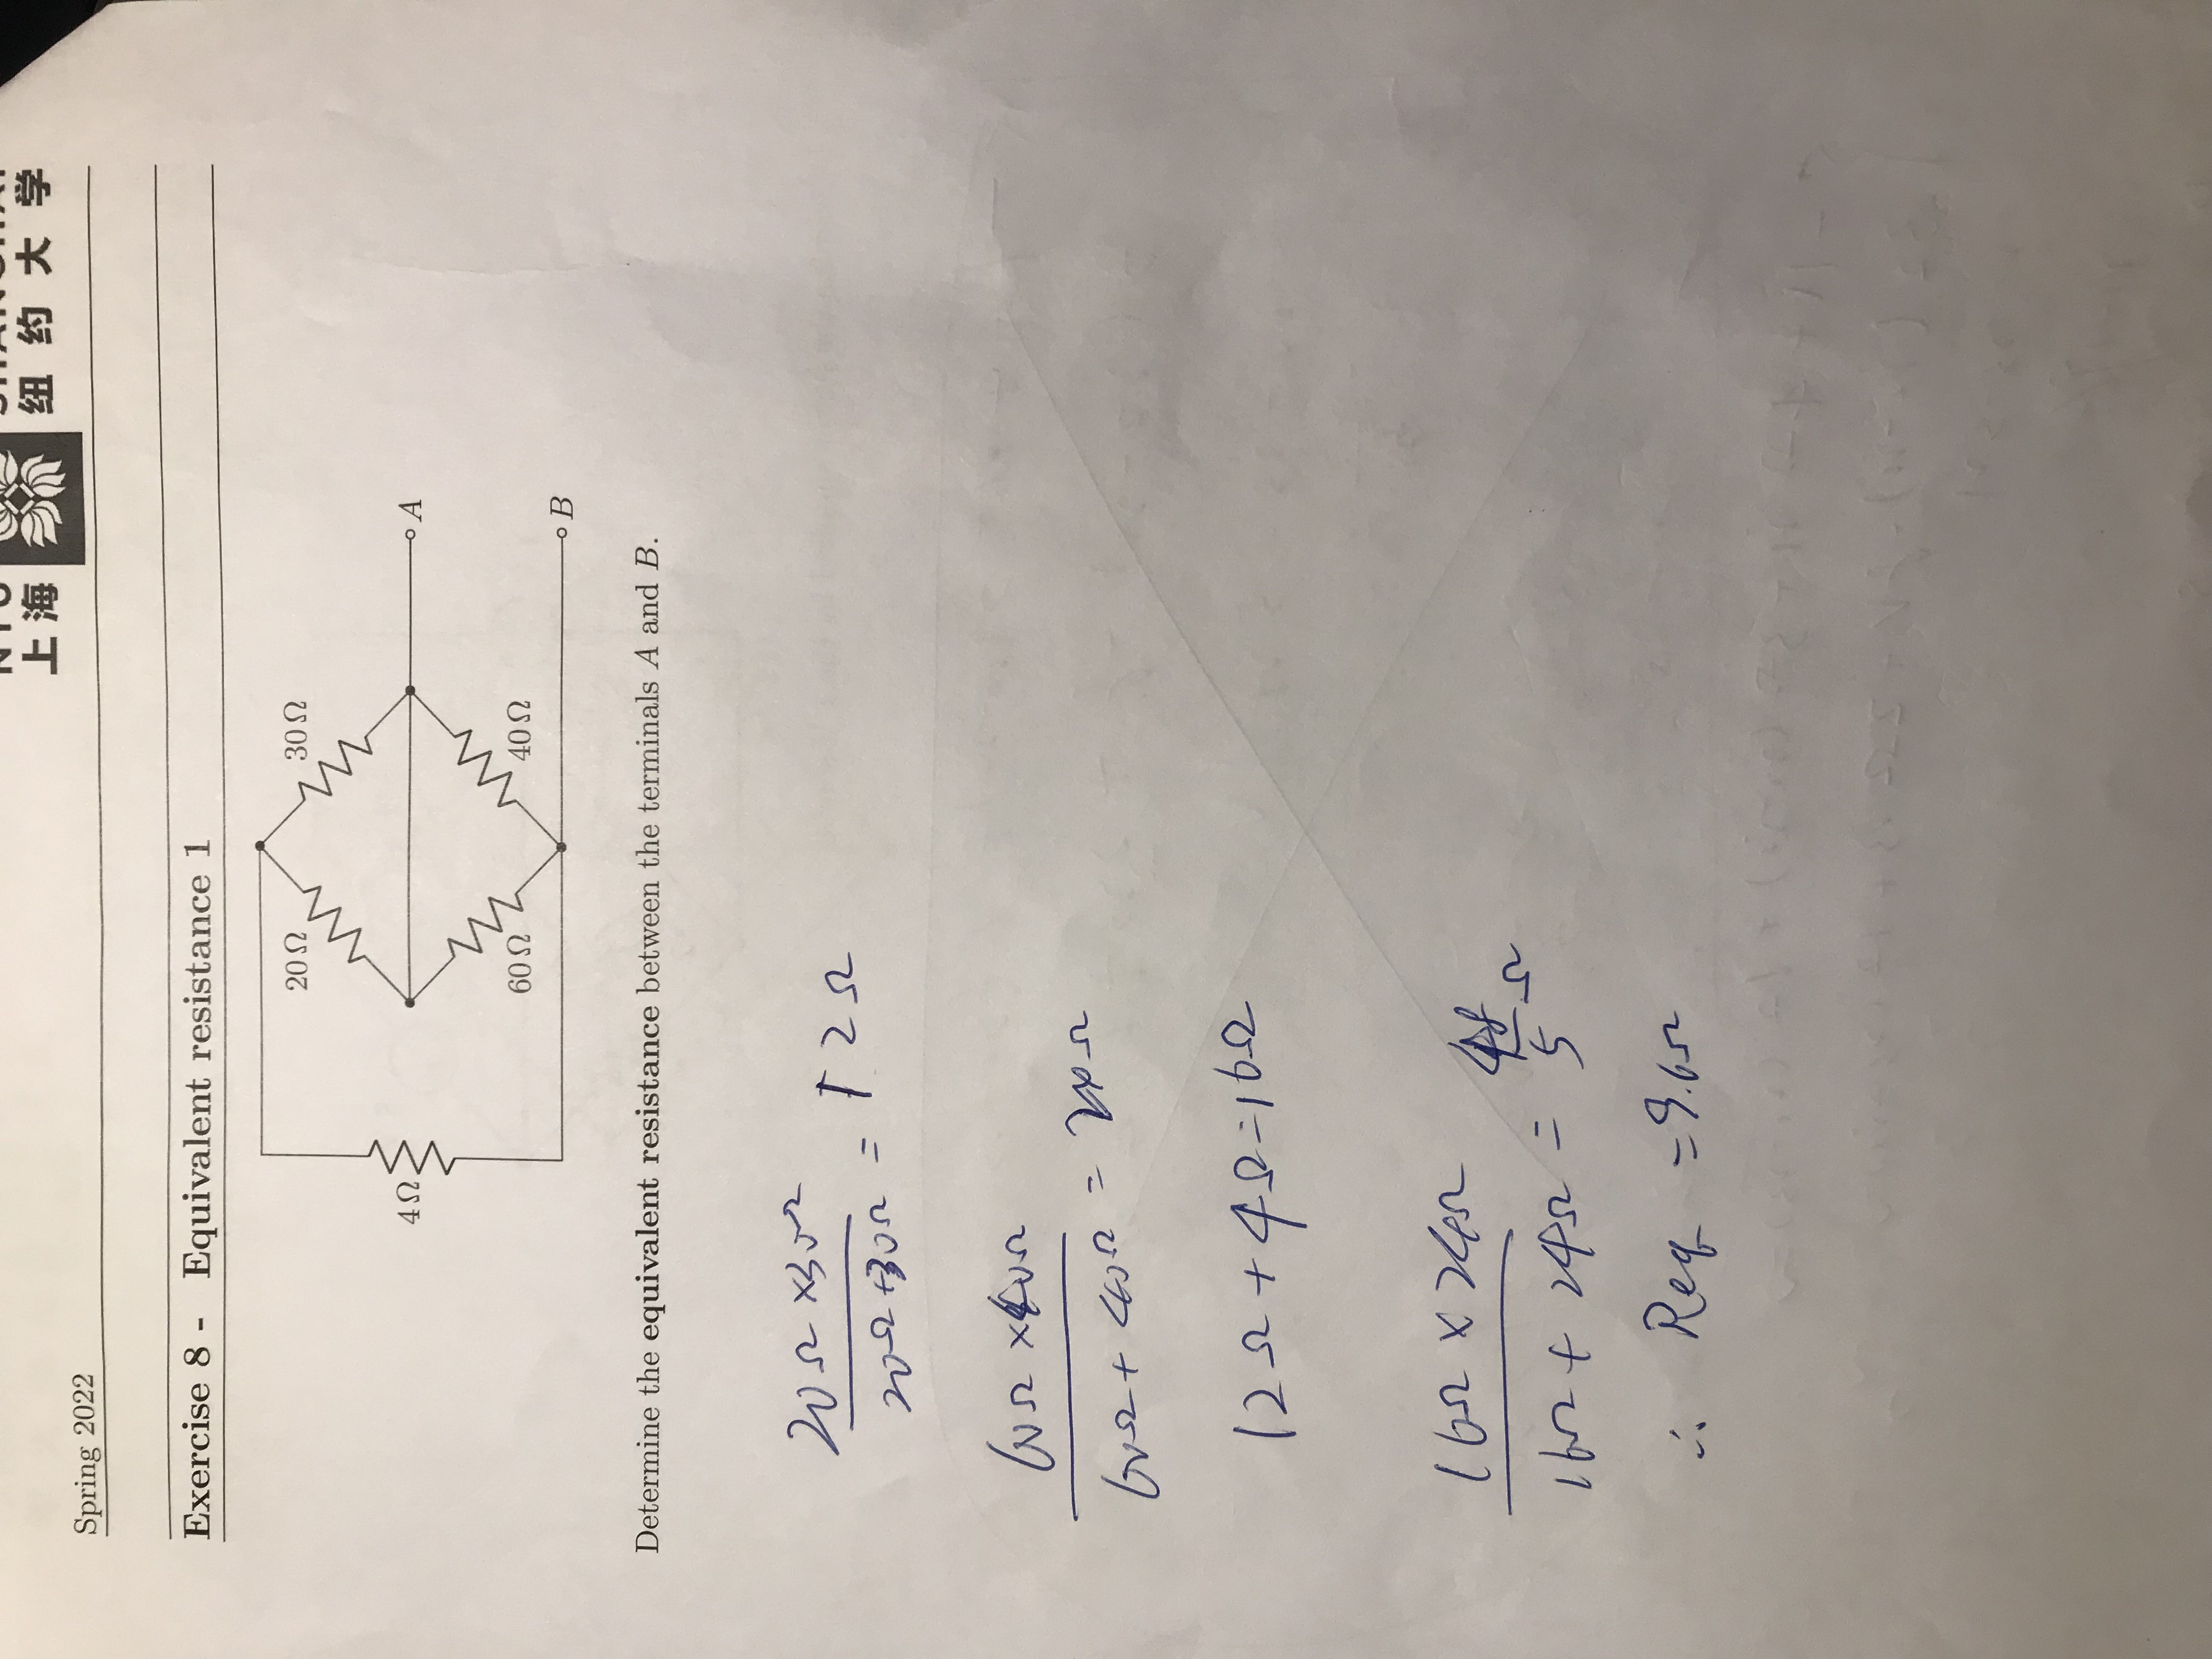 上海 纽约大学
Spring 2022
Exercise 8 - Equivalent resistance 1
20 Ω 30 Ω
4 Ω A
60 Ω 40 Ω
B
Determine the equivalent resistance between the terminals A and B.
20Ω ×30Ω
20Ω +30Ω = 12Ω
60Ω ×40Ω
60Ω + 40Ω = 24Ω
12Ω + 4Ω = 16Ω
16Ω × 24Ω
16Ω + 24Ω = 48
5 Ω
∴ Req = 9.6Ω